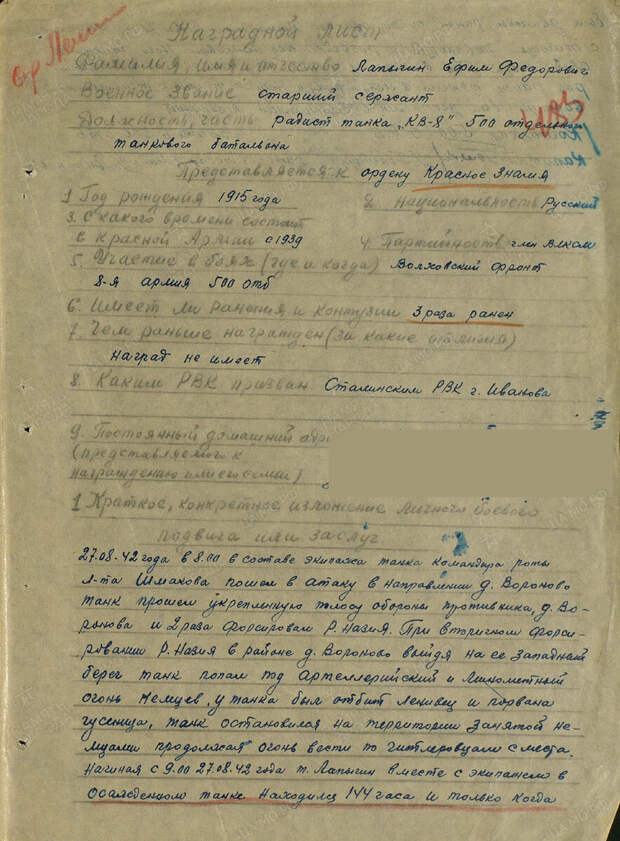 ор. Ленин
Наградной лист
Фамилия, имя и отчество Лапыгин Ефим Федорович
Военное звание старший сержант
Должность, часть радист танка „КВ-8" 500 отдельного
танкового батальона
Представляется к ордену Красное Знамя
1 Год рождения 1915 года 2. Национальность Русский
3. С какого времени состоит
в Красной Армии с 1939 4. Партийность член ВЛКСМ
5. Участие в боях (где и когда) Волховский фронт
8-я армия 500 отб
6. Имеет ли ранения и контузии 3 раза ранен
7. Чем раньше награжден (за какие отличия)
наград не имеет
8. Каким РВК призван Сталинским РВК г. Иванова
9. Постоянный домашний адре
(представляемого к
награждению или его семьи)
1 Краткое, конкретное изложение личного боевого
подвига или заслуг
27.08.42 года в 8.00 в составе экипажа танка командира роты
л-та Шмакова пошел в атаку в направлении д. Вороново
танк прошел укрепленную полосу обороны противника, д. Во-
ронова и 2 раза форсировал Р. Назия. При вторичном форси-
ровании Р. Назия в районе д. Вороново выйдя на ее западный
берег танк попал под Артеллерийский и Минометный
огонь Немцев, у танка был отбит ленивец и порвана
гусеница, танк остановился на территории занятой не-
мцами продолжая огонь вести по гитлеровцам с места.
Начиная с 9.00 27.08.42 года т. Лапыгин вместе с экипажем в
осажденном танке находился 144 часа и только когда